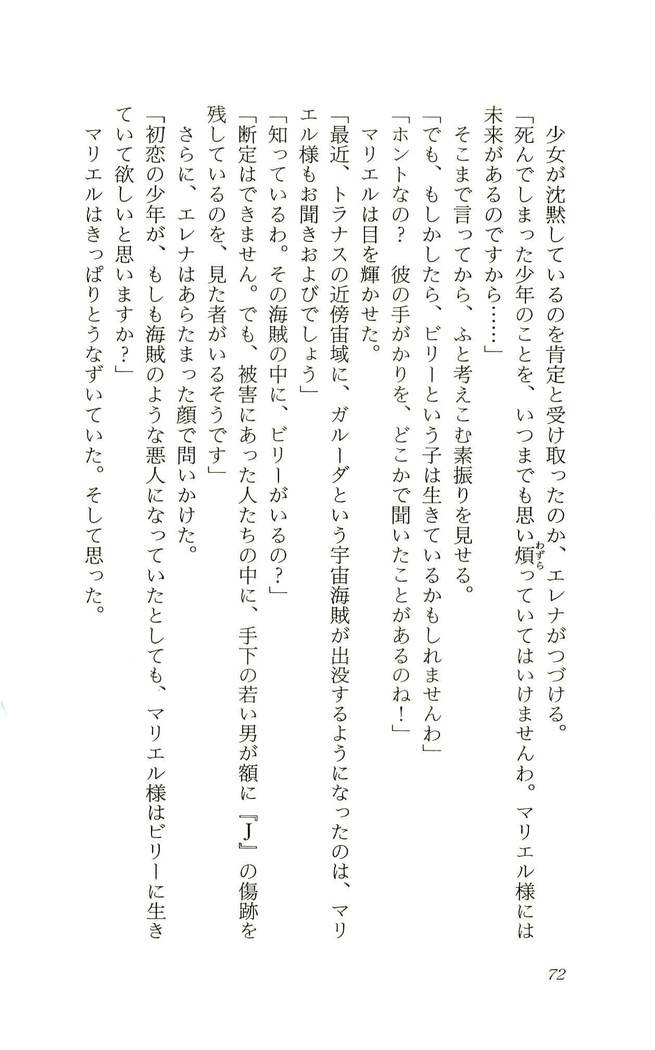 少女が沈黙しているのを肯定と受け取ったのか、エレナがつづける。
「死んでしまった少年のことを、いつまでも思い煩っていてはいけませんわ。マリエル様には
わずら
未来があるのですから……」
そこまで言ってから、ふと考えこむ素振りを見せる。
「でも、もしかしたら、ビリーという子は生きているかもしれませんわ」
「ホントなの？　彼の手がかりを、どこかで聞いたことがあるのね！」
マリエルは目を輝かせた。
「最近、トラナスの近傍宙域に、ガルーダという宇宙海賊が出没するようになったのは、マリ
エル様もお聞きおよびでしょう」
「知っているわ。その海賊の中に、ビリーがいるの？」
「断定はできません。でも、被害にあった人たちの中に、手下の若い男が額に『Ｊ』の傷跡を
残しているのを、見た者がいるそうです」
さらに、エレナはあらたまった顔で問いかけた。
「初恋の少年が、もしも海賊のような悪人になっていたとしても、マリエル様はビリーに生き
ていて欲しいと思いますか？」
マリエルはきっぱりとうなずいていた。そして思った。
72